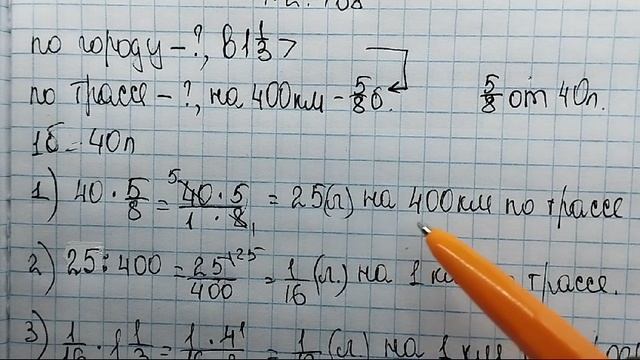 по городу - ?, в 1 1/3 >
по трассе - ?, на 400км - 5/8 б. 5/8 от 40л.
1б - 40л
1) 40 · 5/8 = 40 · 5 / 1 · 8 = 25(л) на 400км по трассе
2) 25 : 400 = 25 / 400 = 1/16 (л.) на 1 трассе.
3) 1/16 · 1 1/3 = (л.) на 1 км